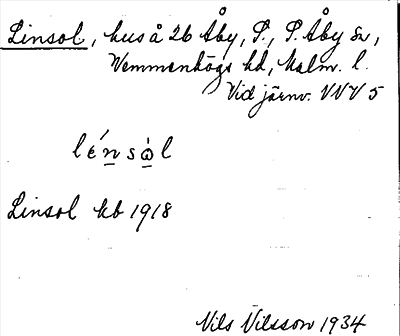 Linsol, hus å 26 Åby, S., S. Åby sn,
Vemmenhögs hd, Malm. l.
Vid järnv. VNV 5
lénsòl
Linsol kb 1918
Nils Nilsson 1934